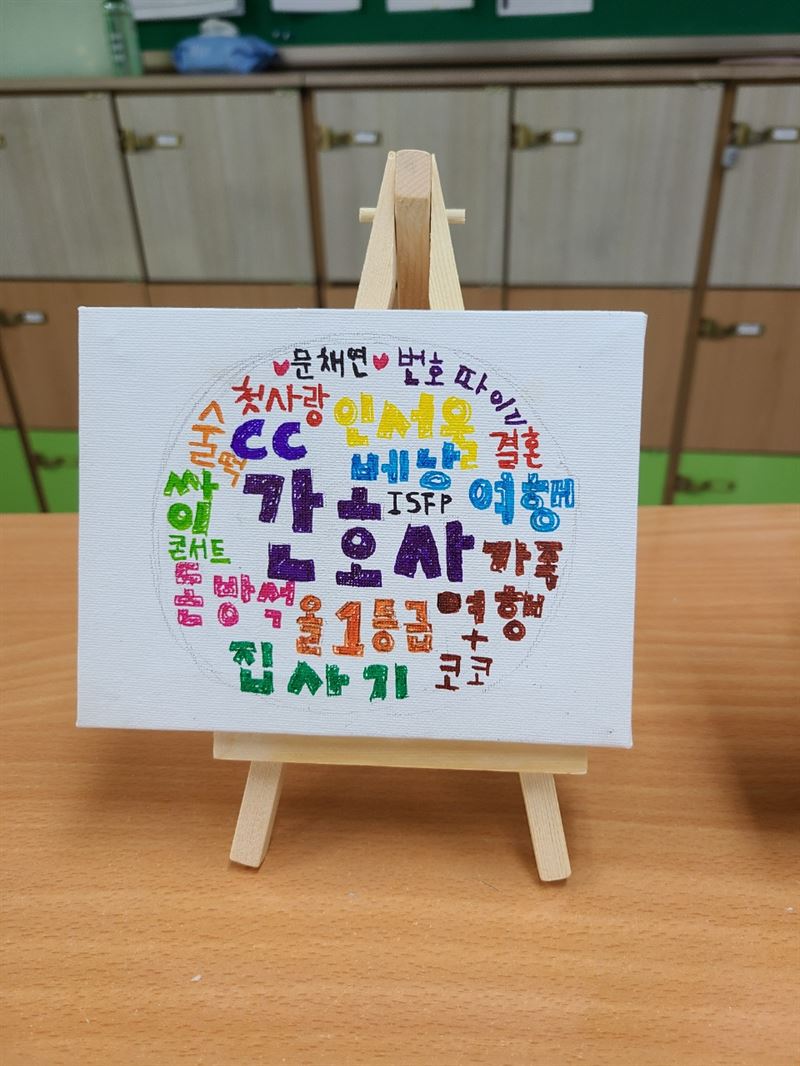 문채연
번호 따이기
첫사랑
인서울
꿀떡
CC
결혼
베낭
여행
싸이
콘서트
ISFP
간호사
가족
여행
+
코코
돈방석
올1등급
집 사기